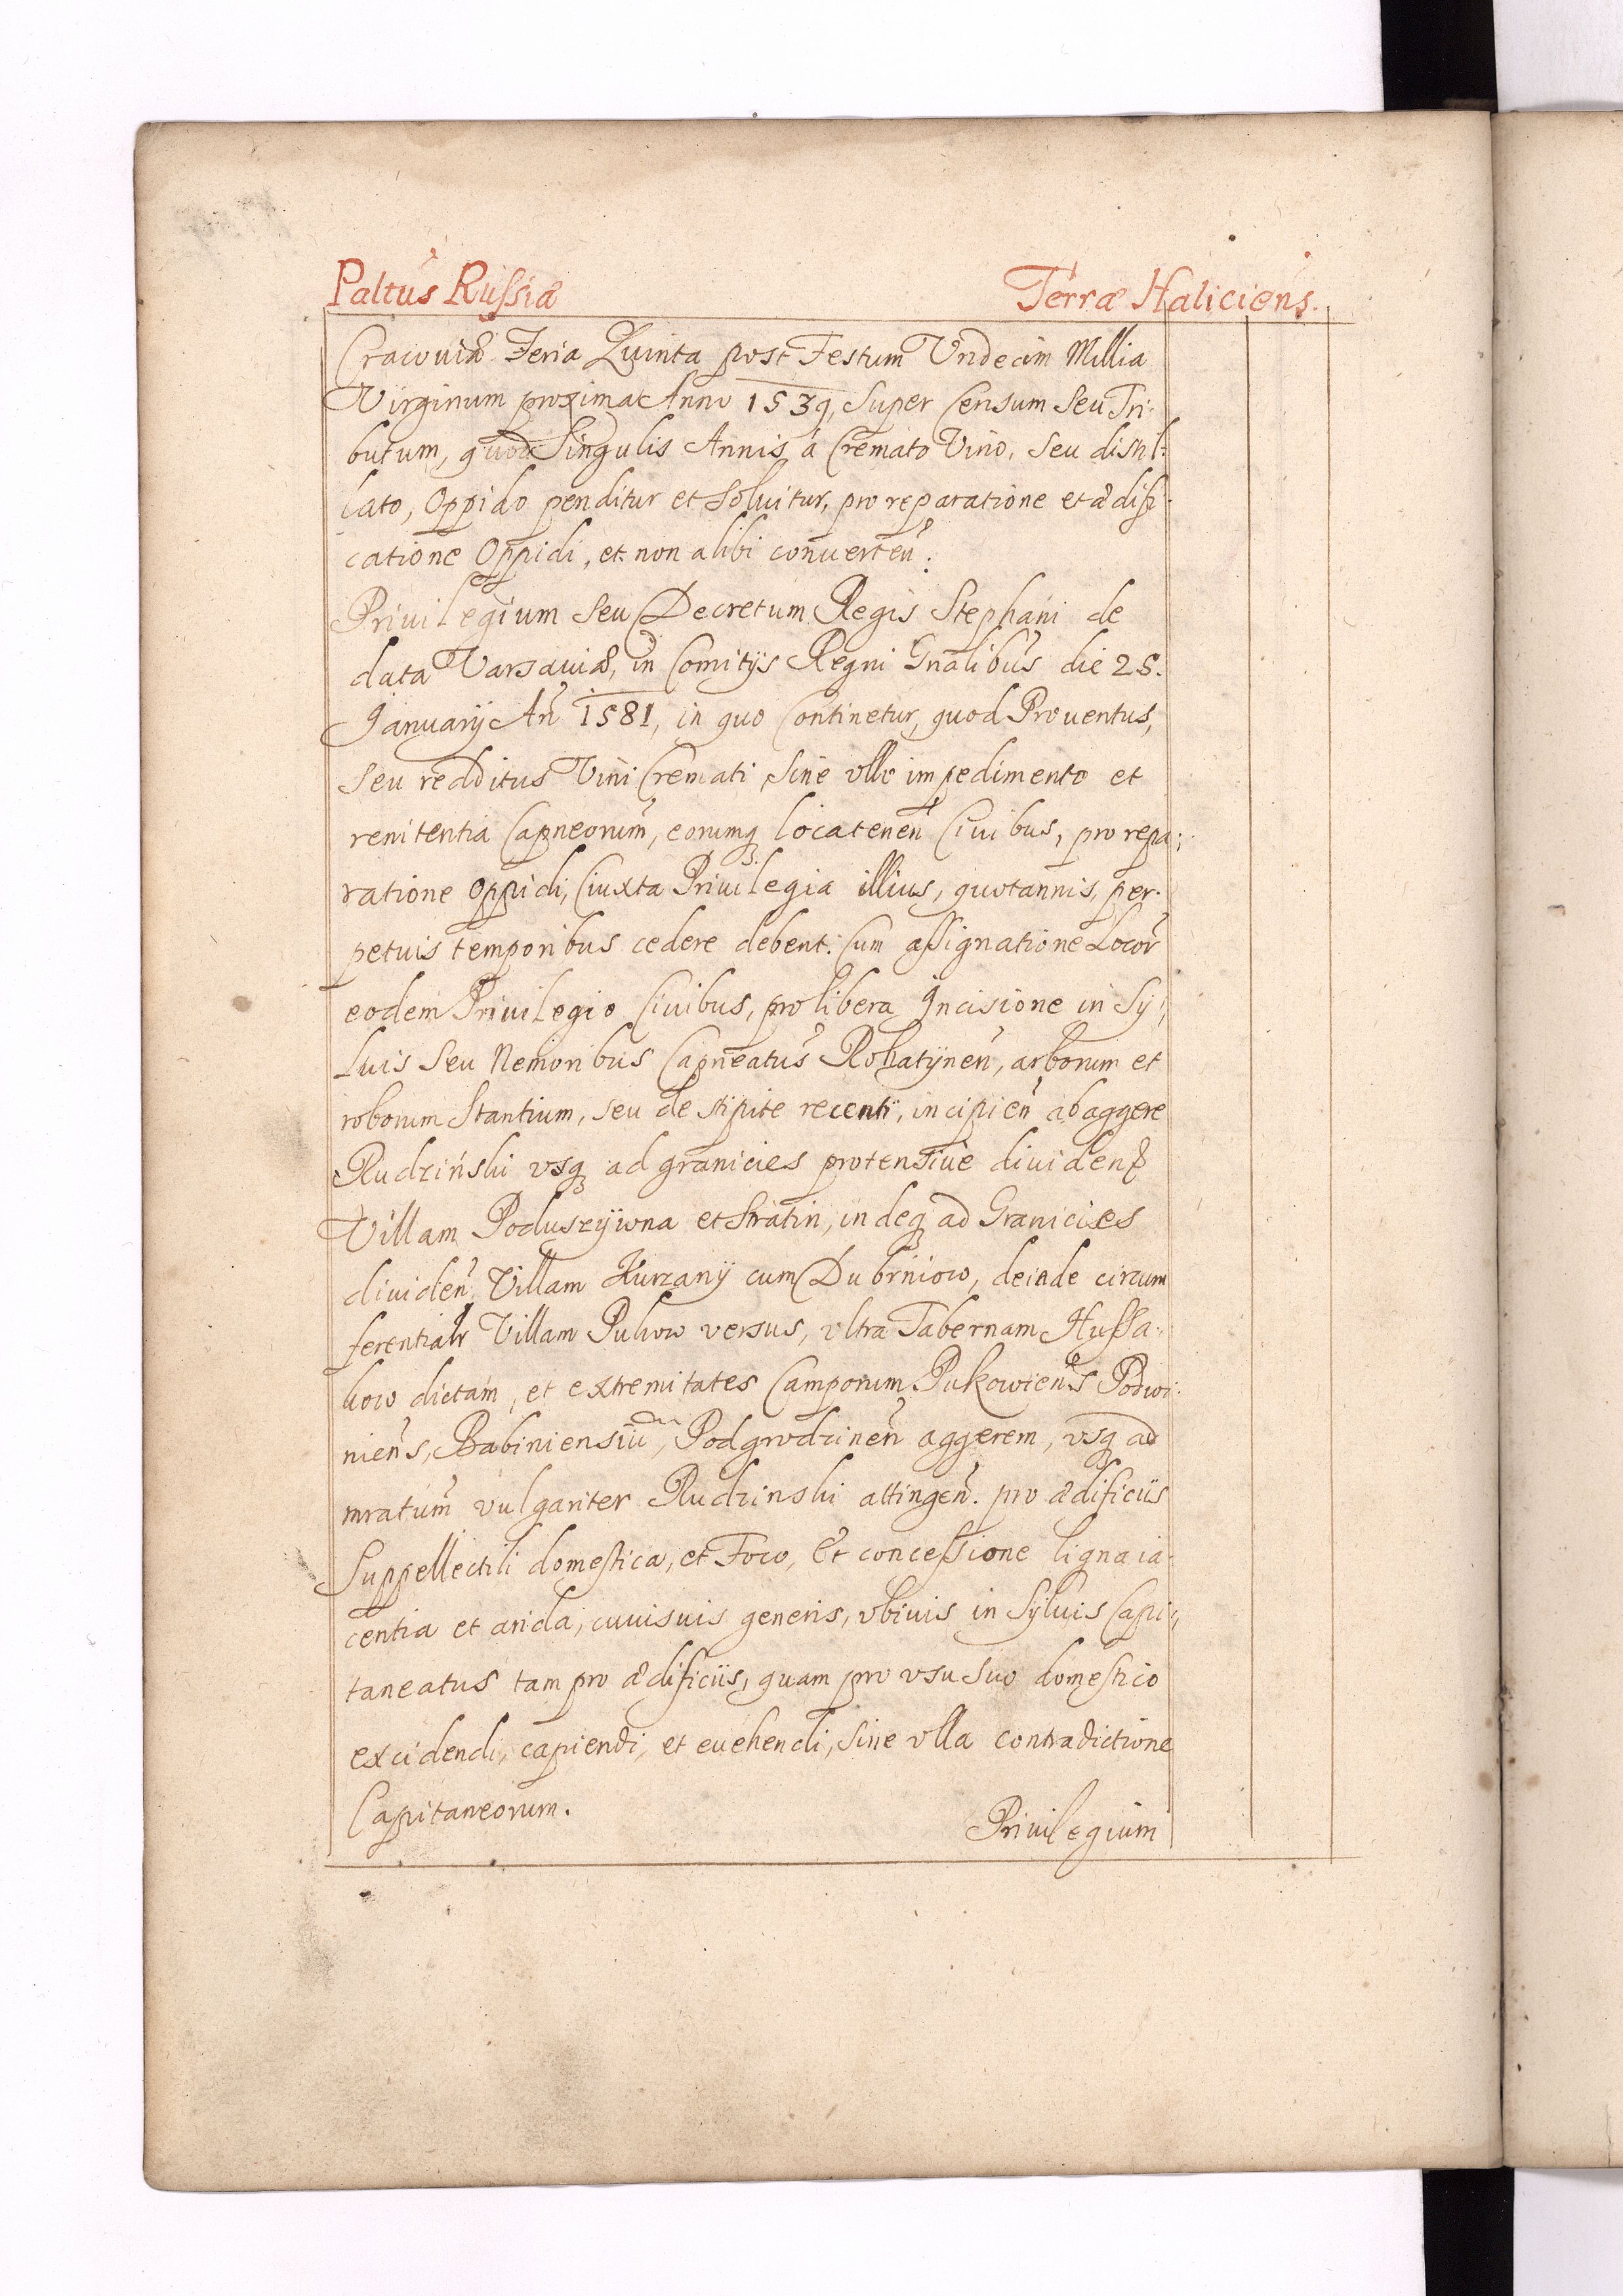 Paltus Russiæ Terræ Haliciens.
Cracouiæ Feria Quinta post Festum Vndecim Millia
Virginum proxima Anno 1539, Super Censum Seu Tri-
butum, quod Singulis Annis á Cremato Vino, Seu distil-
lato, Oppido penditur et Soluitur, pro reparatione et ædifi-
catione Oppidi, et non alibi conuerten.
Priuilegium Seu Decretum Regis Stephani de
data Varsauiæ, in Comitijs Regni Gnalibus die 25.
Januarij An 1581, in quo Continetur, quod Prouentus,
Seu redditus Vini Cremati Sine vllo impedimento et
renitentia Capneorum, eorumq locatenen Ciuibus, pro repa-
ratione Oppidi, iuxta Priuilegia illius, quotannis, per-
petuis temporibus cedere debent. Cum assignatione Locor
eodem Priuilegio Ciuibus, pro libera Incisione in Sy-
luis Seu Nemoribus Capneatus Rohatijnen, arborum et
roborum Stantium, seu de stipite recenti, incipien ab aggere
Rudziński vsq ad granicies protensiue diuiden
Villam Poduszijwna et Stratin, indeq ad Granicies
diuiden Villam Kurzanij cum Dubrniow, deinde circum
ferentialr Villam Pukow versus, vltra Tabernam Hussa-
kow dictam, et extremitates Camporum Pukowiens Podwi-
niens, Babiniensiu, Podgrodzinen aggerem, vsq ad
mratum vulgariter Rudzinski attingen. pro ædificiis
Suppellectili domestica, et Foco, Et concessione ligna ia-
centia et arida, cuuisuis generis, vbiuis in Syluis Capi-
taneatus tam pro ædificiis, quam pro vsu Suo domestico
excidendi, capiendi, et euehendi, Sine vlla contradictione
Capitaneorum.
Priuilegium